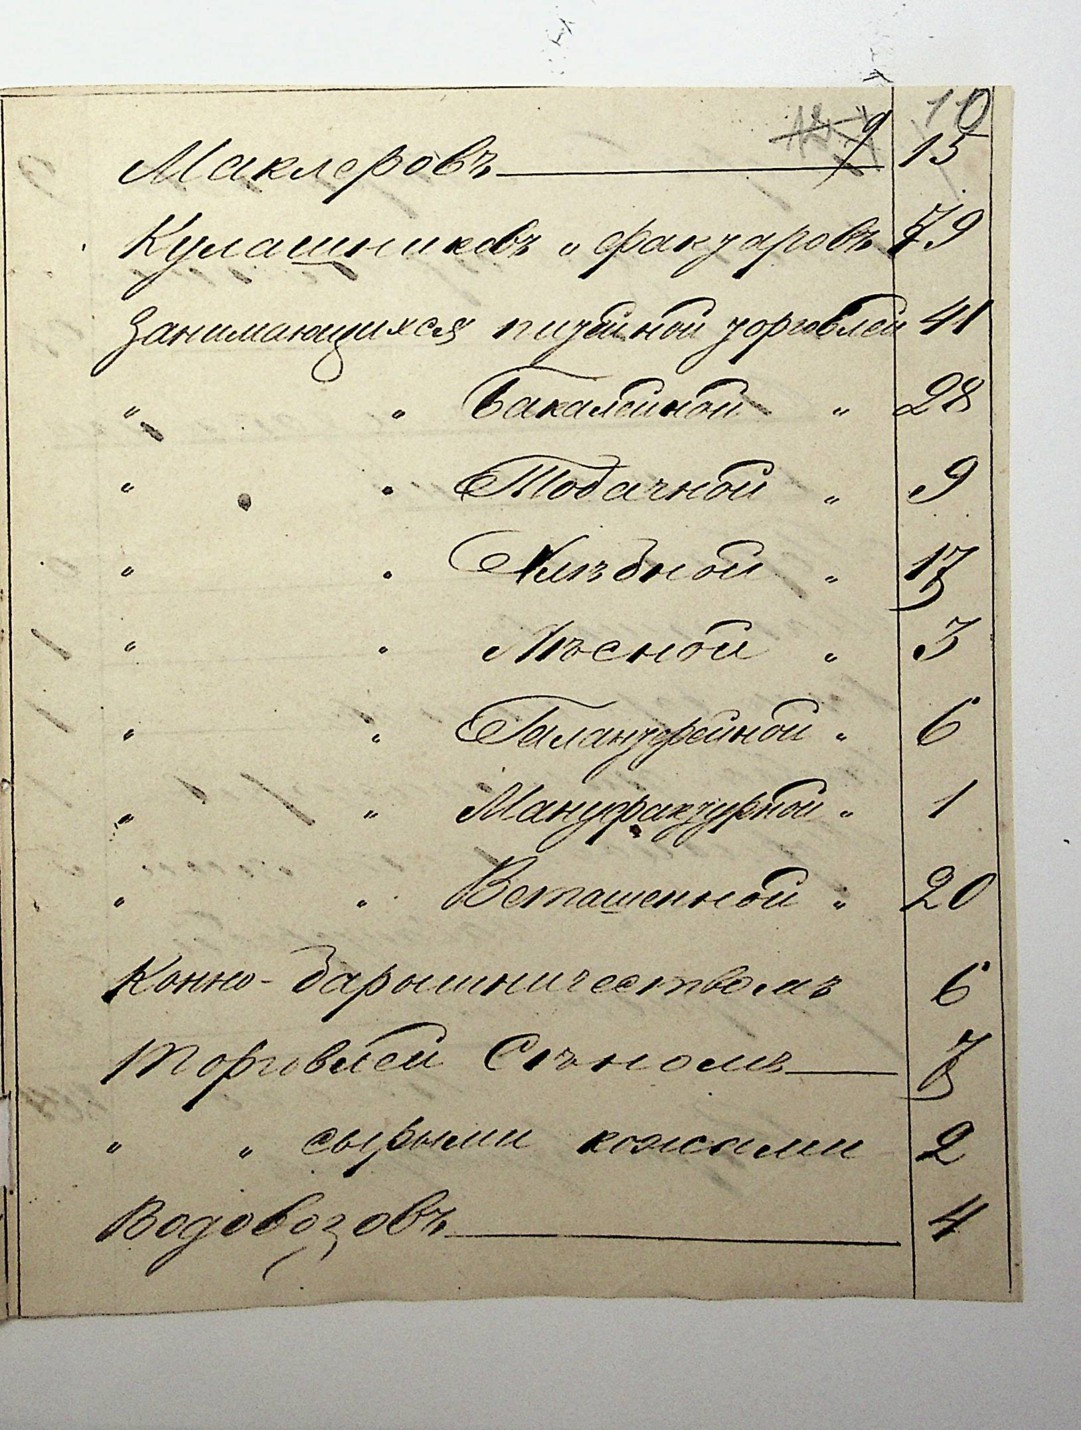 10
Маклеровъ 15
Кулашниковъ „ факторовъ 79
Занимающихся питейной торговлей 41
„ „ Бакалейной „ 28
„ „ Тобачной „ 9
„ „ Хлѣбной „ 17
„ „ Лѣсной „ 3
„ „ Галантерейной „ 6
„ „ Мануфактурной „ 1
„ „ Веташенной „ 20
Конно-барышничествомъ 6
Торговлей Сѣномъ 7
„ „ сырыми кожами 2
Водовозовъ 4